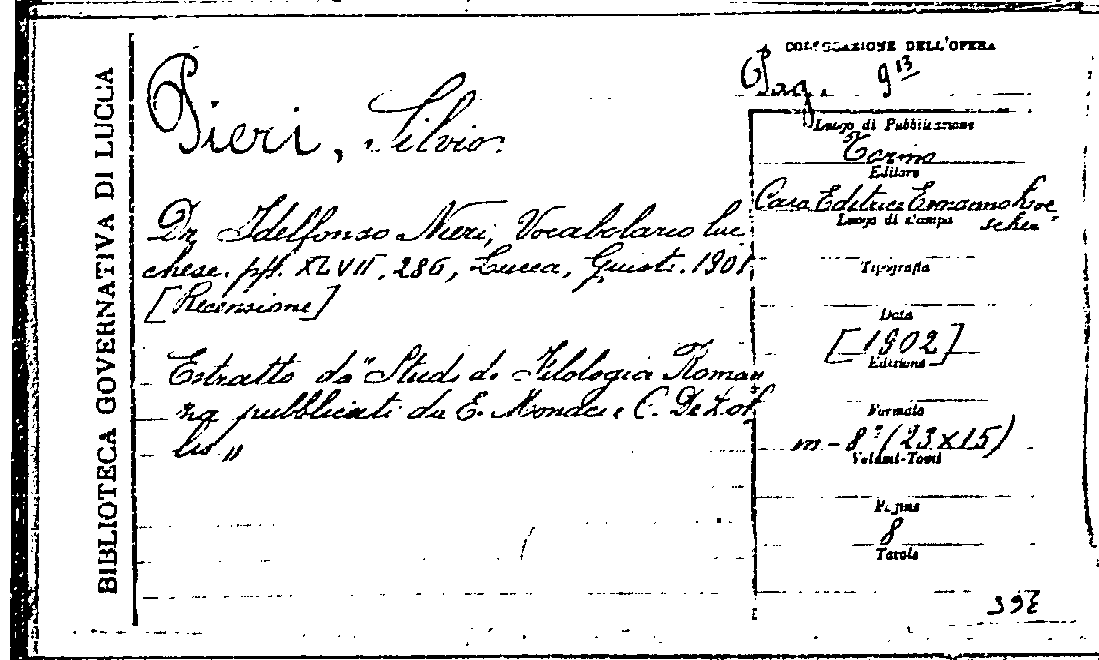 BIBLIOTECA GOVERNATIVA DI LUCCA
Pieri, Silvio.
Dr. Idelfonso Nieri, Vocabolario luc
chese. pp. XLVII, 286, Lucca, Giusti. 1901
[Recensione]
Estratto da "Studi di Filologia Roman
za pubblicati da E. Monaci e C. De Lol
lis"
COLLOCAZIONE DELL'OPERA
Pag. 9 13
Luogo di Pubblicazione
Torino
Editore
Casa Editrice Ermanno Loe
scher
Luogo di stampa
Tipografia
Data
[1902]
Edizione
Formato
in-8° (23x15)
Volumi-Tomi
Pagine
8
Tavole